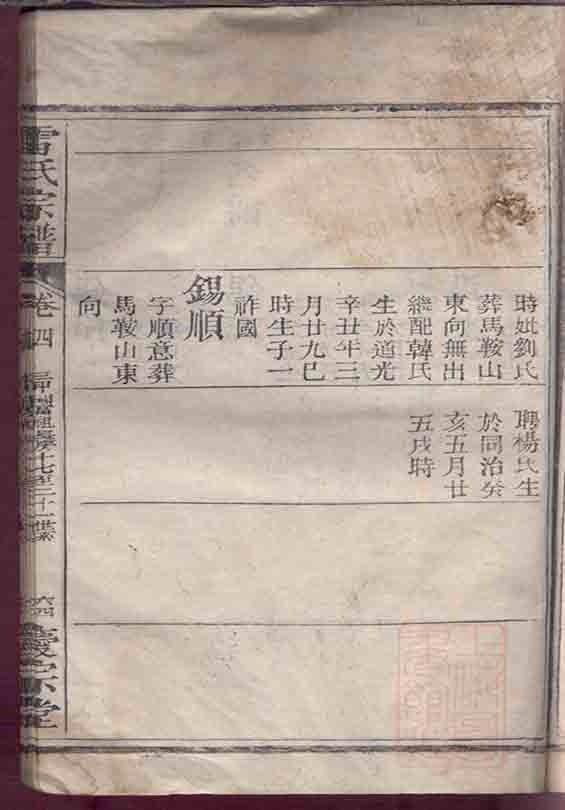 時妣劉氏
葬馬鞍山
東向無出
繼配韓氏
生於道光
辛丑年三
月廿九巳
時生子一
祚國
錫順
字順意葬
馬鞍山東
向
聘楊氏生
於同治癸
亥五月廿
五戌時
雷氏宗譜
卷四
六四